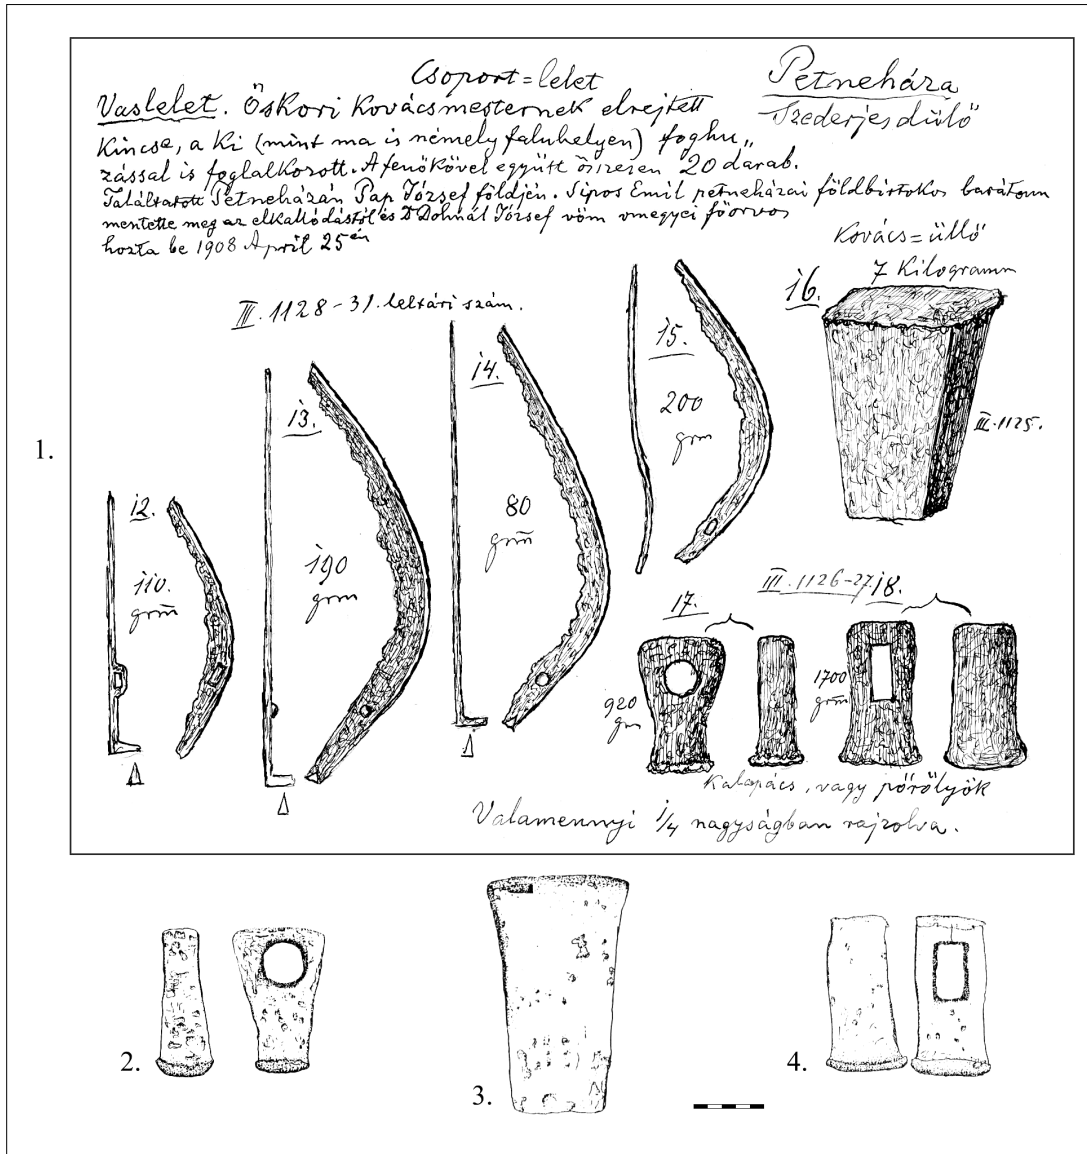 Csoport=lelet
Petneháza
Szederjes dülő
Vaslelet. Őskori Kovácsmesternek elrejtett
Kincse, a Ki (mint ma is némely faluhelyen) foghu„
zással is foglalkozott. A fenőkövel együtt összesen 20 darab.
Találtatott Petneházán Pap József földjén. Sipos Emil petneházai földbirtokos barátom
mentette meg az elkallódástól és Dr Dohnál József vöm vmegyei főorvos
hozta be 1908 April 25én
III. 1128-31. leltári szám.
Kovács=üllő
7 Kilogramm
16.
15.
200
grm
III. 1125.
14.
80
grm̄
13.
190
grm
12.
110.
grm̄
1.
III. 1126-27.
17.
18.
920
grm
1700
grm̄
Kalapács, vagy pőrőlyök
Valamennyi 1/4 nagyságban rajzolva.
2.
3.
4.